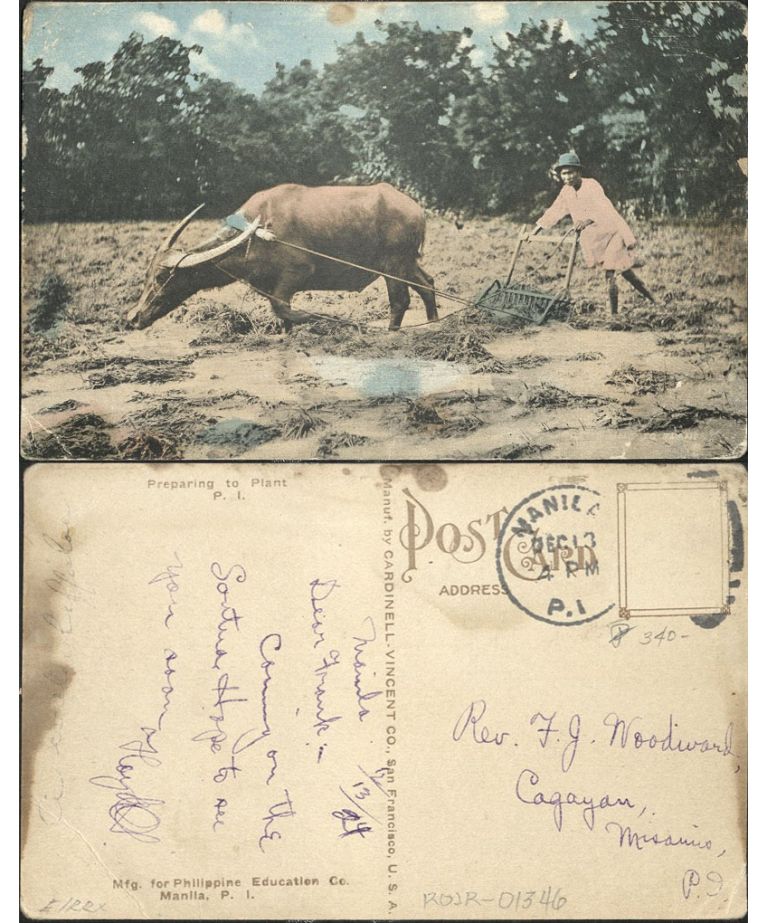 Preparing to Plant
P. I.
Manuf. by CARDINELL-VINCENT CO., San Francisco, U. S. A.
POST CARD
ADDRESS
MANILA
DEC 13
4 PM
P. I
₱ 340-
Manila 12/13/24
Dear Frank:-
Coming on the
Hope to see
you soon
Floyd
Rev. F. J. Woodward,
Cagayan,
Misamis,
P.I.
Mfg. for Philippine Education Co.
Manila, P. I.
ROJR-01346